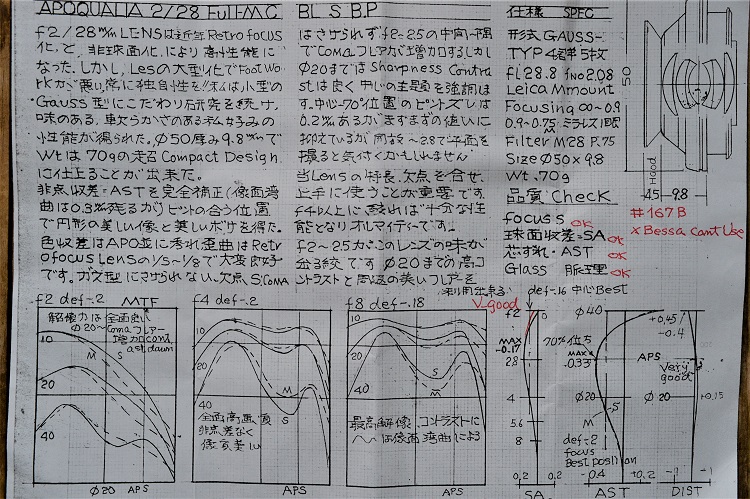 APOQUALIA 2/28 Full-MC BL S BP
f2/28mm LENSは近年Retro focus
化と非球面化により高性能に
なった.しかしLesの大型化でFoot Wo
Gauss型にこだわり研究を続け
味のある.
性能が得られた.Φ50厚み9.8mmで
Wtは70gの超Compact Design
に仕上ることが出来た。
非点収差=ASTを完全補正(像面湾
曲は0.3%残るが)ピントの合う位置
で円形の美しい像と美しいボケを得た。
色収差はAPO並に秀れ歪曲はRetr
ofocus Lensの1/5~1/8で大変良好
です.ガウス型にさけられない欠点S(COMA
はさけられずf2~2.5の中間~隅
でComaフレアが増加するしかし
Φ20まではSharpness Contra
stは良く中心の主題を強調しま
す.中心~70%位置のピントズレは
撮ると気付くかもしれません
当Lensの特長、欠点を合せ、
上手に使うことが重要です.
f4以上に絞れば十分な性
能となりオールマイティーです!
f2~2.5がこのレンズの味が
出る絞です Φ20までの高コ
ントラストと周辺の美しいフレアを
利用出来る
仕様 SPEC
形式 GAUSS-
TYP 4群5枚
fl 28.8 fno 2.08
Leica M mount
Focusing ∞~0.9
Filter M28 P.75
Size Φ50×9.8
Wt. 70g
品質 Check
focus s OK
球面収差=SA OK
芯ずれ・AST OK
Glass 脈理 OK
50
Hood
4.5 9.8
#167B
×Bessa Cant Use
f2 def-.2 MTF
解像力は全面良い
Φ20~Comaフレアー
増加 Cont,
ast down
10
20
40
M S
Φ20 APS
f4 def-.2
10
20
40
M
S
全面高画質
非点差なく
像質美しい
APS
f8 def-.18
10
20
40
S
M
最高解像 コントラストに
は像面湾曲による
APS
V-good
def-.16 中心Best
f2
MAX
-0.17
2.8
4
5.6
8
0.2 0.2
SA
Φ40
70%位ち
MAX
-0.33
Φ20
S
M
def-.2
focus
Best position
-0.4 +0.2
AST
+0.45/
-0.4
APS
Very
good
Φ20
+0.15
-1 +1
DIST